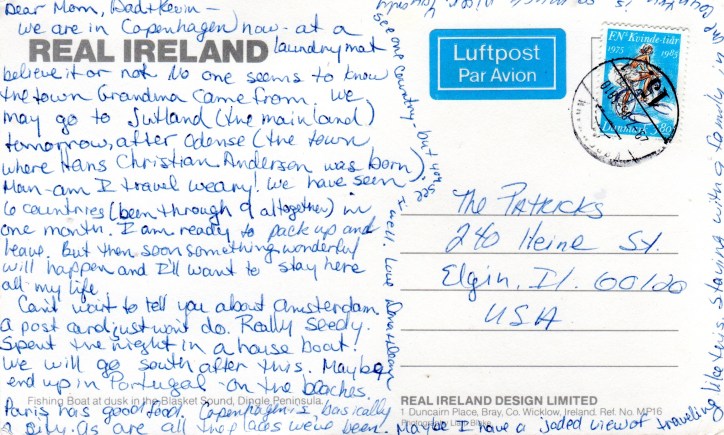 Dear Mom, Dad & Kevin -
we are in Copenhagen now - at a
REAL IRELAND
laundrymat
believe it or not. No one seems to know
the town Grandma came from. We
may go to Jutland (the mainland)
tomorrow, after Odense (the town
where Hans Christian Anderson was born).
Man - am I travel weary! We have seen
6 countries (been through 9 altogether) in
one month. I am ready to pack up and
leave. But then soon something wonderful
will happen and I'll want to stay here
all my life.
Can't wait to tell you about Amsterdam.
a post card just won't do. Really seedy.
Spent the night in a house boat.
We will go south after this. Maybe
end up in Portugal - on the beaches.
Fishing Boat at dusk in the Blasket Sound, Dingle Peninsula,
Paris has good food. Copenhagen is basically
a city. As are all the places we've been.
Maybe I have a jaded view of traveling
like this. Staying with a family in
one country - but
Love
Luftpost
Par Avion
EN's Kvinde-tiår
1975 1985
Danmark 3.80
The Patricks
240 Heine St.
Elgin, Il. 60120
USA
REAL IRELAND DESIGN LIMITED
1 Duncairn Place, Bray, Co. Wicklow, Ireland. Ref. No. MP16